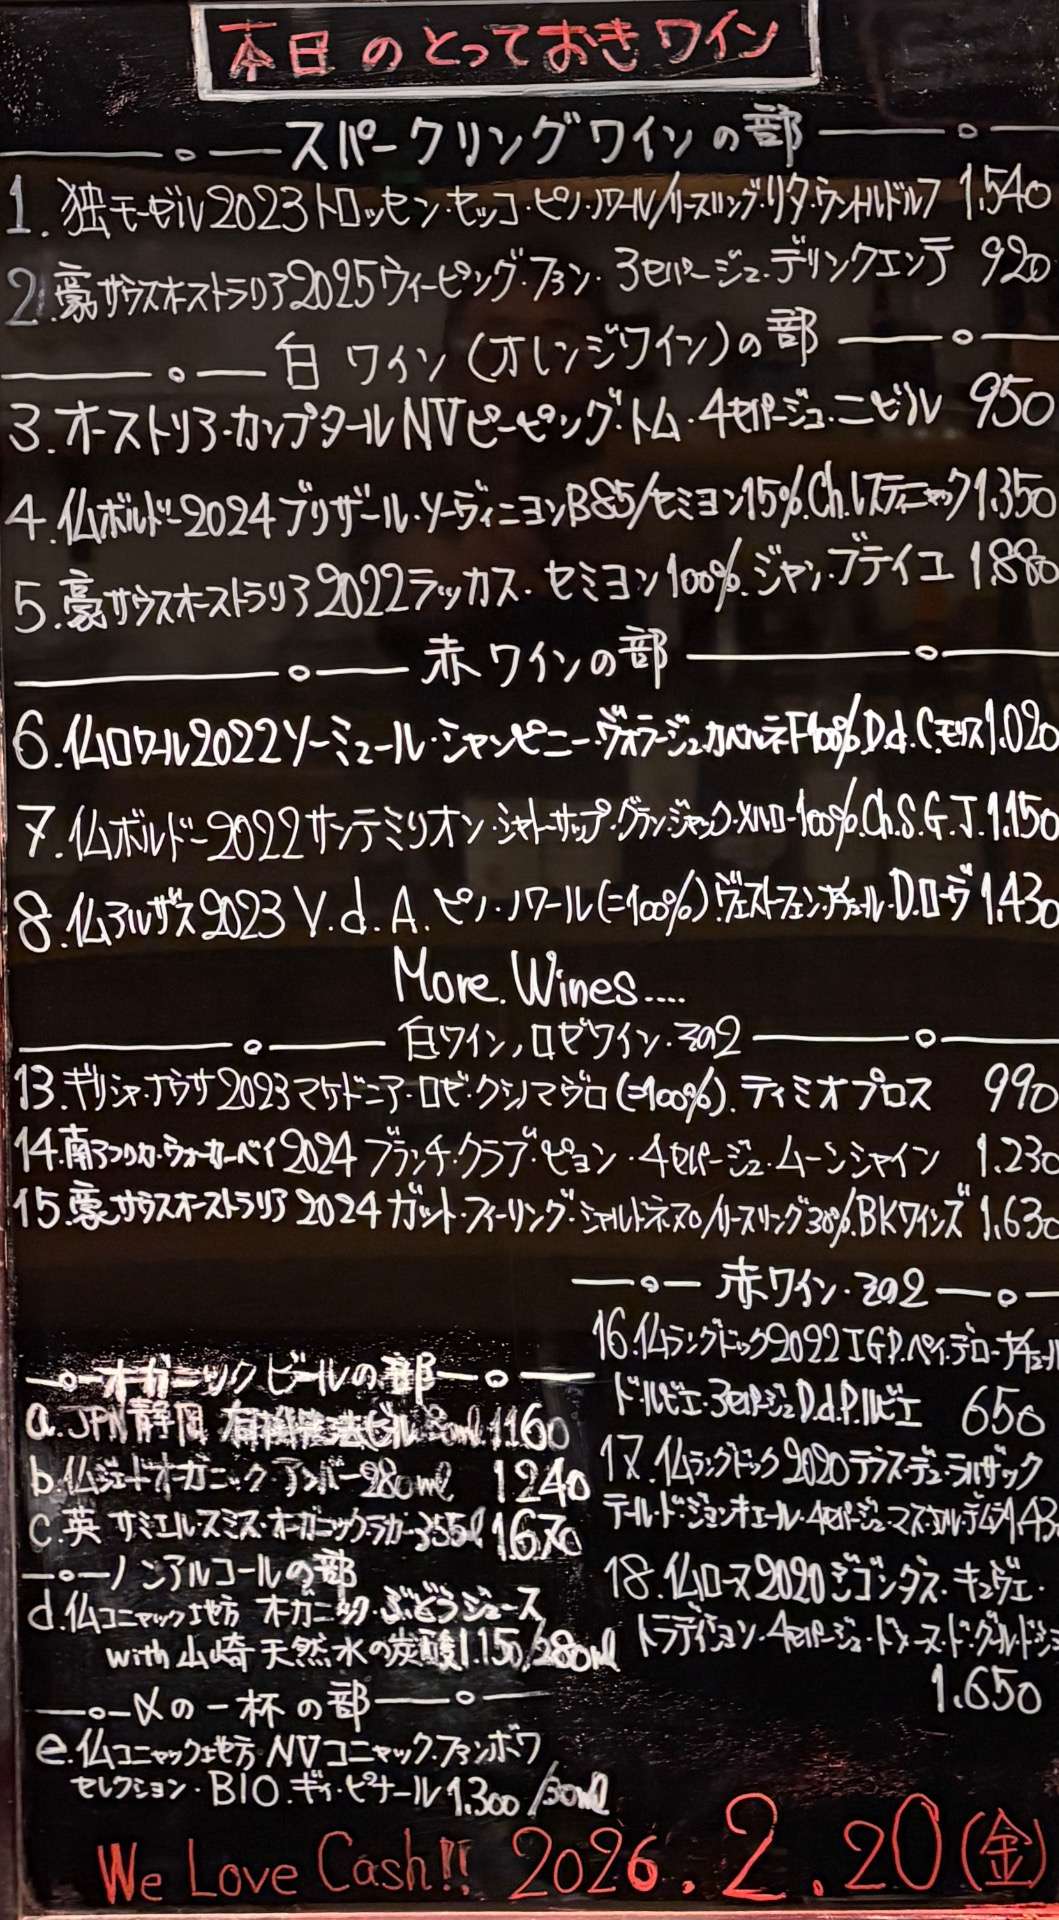 本日のとっておきワイン
スパークリングワインの部
1. 独モーゼル2023トロッセン・セッコ・ピノ・ノワール/リースリング・リタ・ウントルドルフ 1.540
2. 豪サウスオーストラリア2025ウィーピング・ファン・3セパージュ・デリンクエンテ 920
白ワイン(オレンジワイン)の部
3. オーストリア・カンプタールNVピーピング・トム・4セパージュ・ニビル 950
4. 仏ボルドー2024ブリザール・ソーヴィニヨンB85/セミヨン15%.Ch.レスティニャック1.350
5. 豪サウスオーストラリア2022ラッカス・セミヨン100%.ジャン・ブティユ 1.880
赤ワインの部
6. 仏ロワール2022ソーミュール・シャンピニー・ヴォラージュ・カベルネF100%D.d.C.モリス1.020
7. 仏ボルドー2022サンテミリオン・シャトー・サップ・グラン・ジャック・メルロー100%.Ch.S.G.J.1.150
8. 仏アルザス2023 V.d.A.ピノ・ノワール(=100%).ヴェストフェン・ナチュール・D.ローヴ 1.430
More Wines....
白ワイン,ロゼワイン・ヨの2
13. ギリシャ・ナウサ2023マケドニア・ロゼ・クシノマヴロ(=100%).ティミオプロス 990
14. 南アフリカ・ウォーカーベイ2024 ブランチ・クラブ・ピョン・4セパージュ・ムーンシャイン 1.230
15. 豪サウスオーストラリア2024ガット・フィーリング・シャルドネ70/リースリング30%.BKワインズ 1.630
赤ワイン・ヨの2
16. 仏ラングドック2022IGP.ペイ・デロー・ナチュール
ドルビエ・3セパージュD.d.P.ルビエ 650
17. 仏ラングドック2020テラス・デュ・ラルザック
テール・ド・ジョンキエール・4セパージュ・マス・カル・デムラ1.43
18. 仏ローヌ2020ジゴンダス・キュヴェ・
トラディション・4セパージュ・ドメーヌ・ド・グール・ド・
1.650
オーガニックビールの部
a. JPN静岡 ml 1160
b. 仏ジェードオーガニック・アンバー280ml 1240
c. 英 サミエルスミス・オーガニックラガー355ml 1.670
ノンアルコールの部
d. 仏コニャック地方 オーガニック・ぶどうジュース
with 山崎 天然水の炭酸1.150/280ml
〆の一杯の部
e. 仏コニャック地方 NVコニャック・ファンボワ
セレクション・BIO.ギィ・ピナール1.300/30ml
We Love Cash!! 2026.2.20(金)